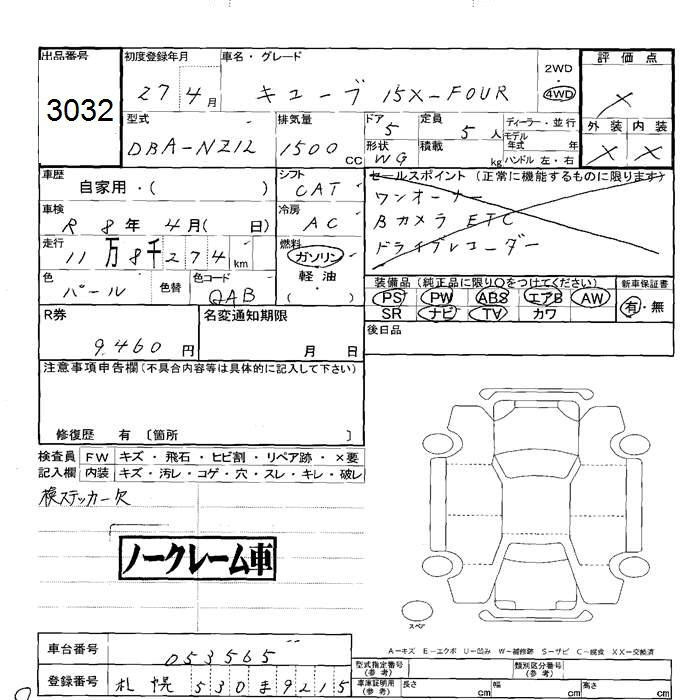 出品番号
3032
初度登録年月
27 4月
車名・グレード
キューブ 15X-FOUR
2WD
・
4WD
評価点
×
外装 内装
× ×
型式
DBA-NZ12
排気量
1500 CC
ドア
5
定員
5 人
形状
WG
積載
kg
ディーラー・並行
モデル年式 年
ハンドル 左・右
車歴
自家用・( )
シフト
CAT
車検
R 8年 4月( 日)
冷房
AC
走行
11万8千274 km
燃料
ガソリン
軽油
・
( )
色
パール
色替
色コード
QAB
セールスポイント (正常に機能するものに限ります)
ワンオーナー
Bカメラ ETC
ドライブレコーダー
装備品 (純正品に限り○をつけてください)
PS PW ABS エアB AW
SR ナビ TV カワ
新車保証書
有・無
後日品
R券
9.460 円
名変通知期限
月 日
注意事項申告欄 (不具合内容等は具体的に記入して下さい)
修復歴 有 〔箇所 〕
検査員 FW キズ・飛石・ヒビ割・リペア跡・×要
記入欄 内装 キズ・汚レ・コゲ・穴・スレ・キレ・破レ
検ステッカー欠
ノークレーム車
スペア
A－キズ E－エクボ U－凹み W－補修跡 S－サビ C－腐食 XX－交換済
車台番号
053565
登録番号
札幌 530 ま 9215
型式指定番号
(参考)
類別区分番号
(参考)
車庫証明用
(参考)
長さ cm 幅 cm 高さ cm